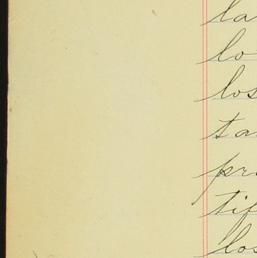 la
lo
los
ta
pr
tif
los